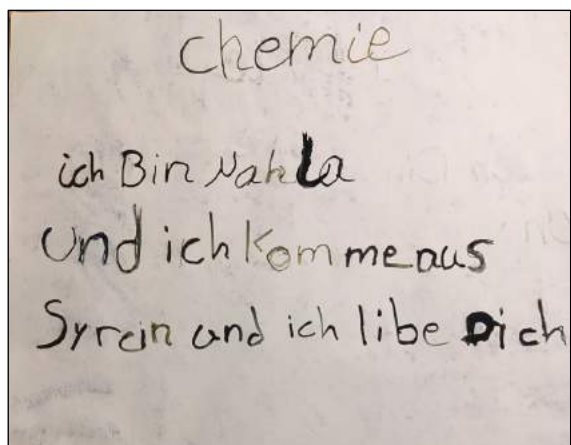 chemie
ich Bin Nahla
Und ich komme aus
Syrein und ich libe Dich